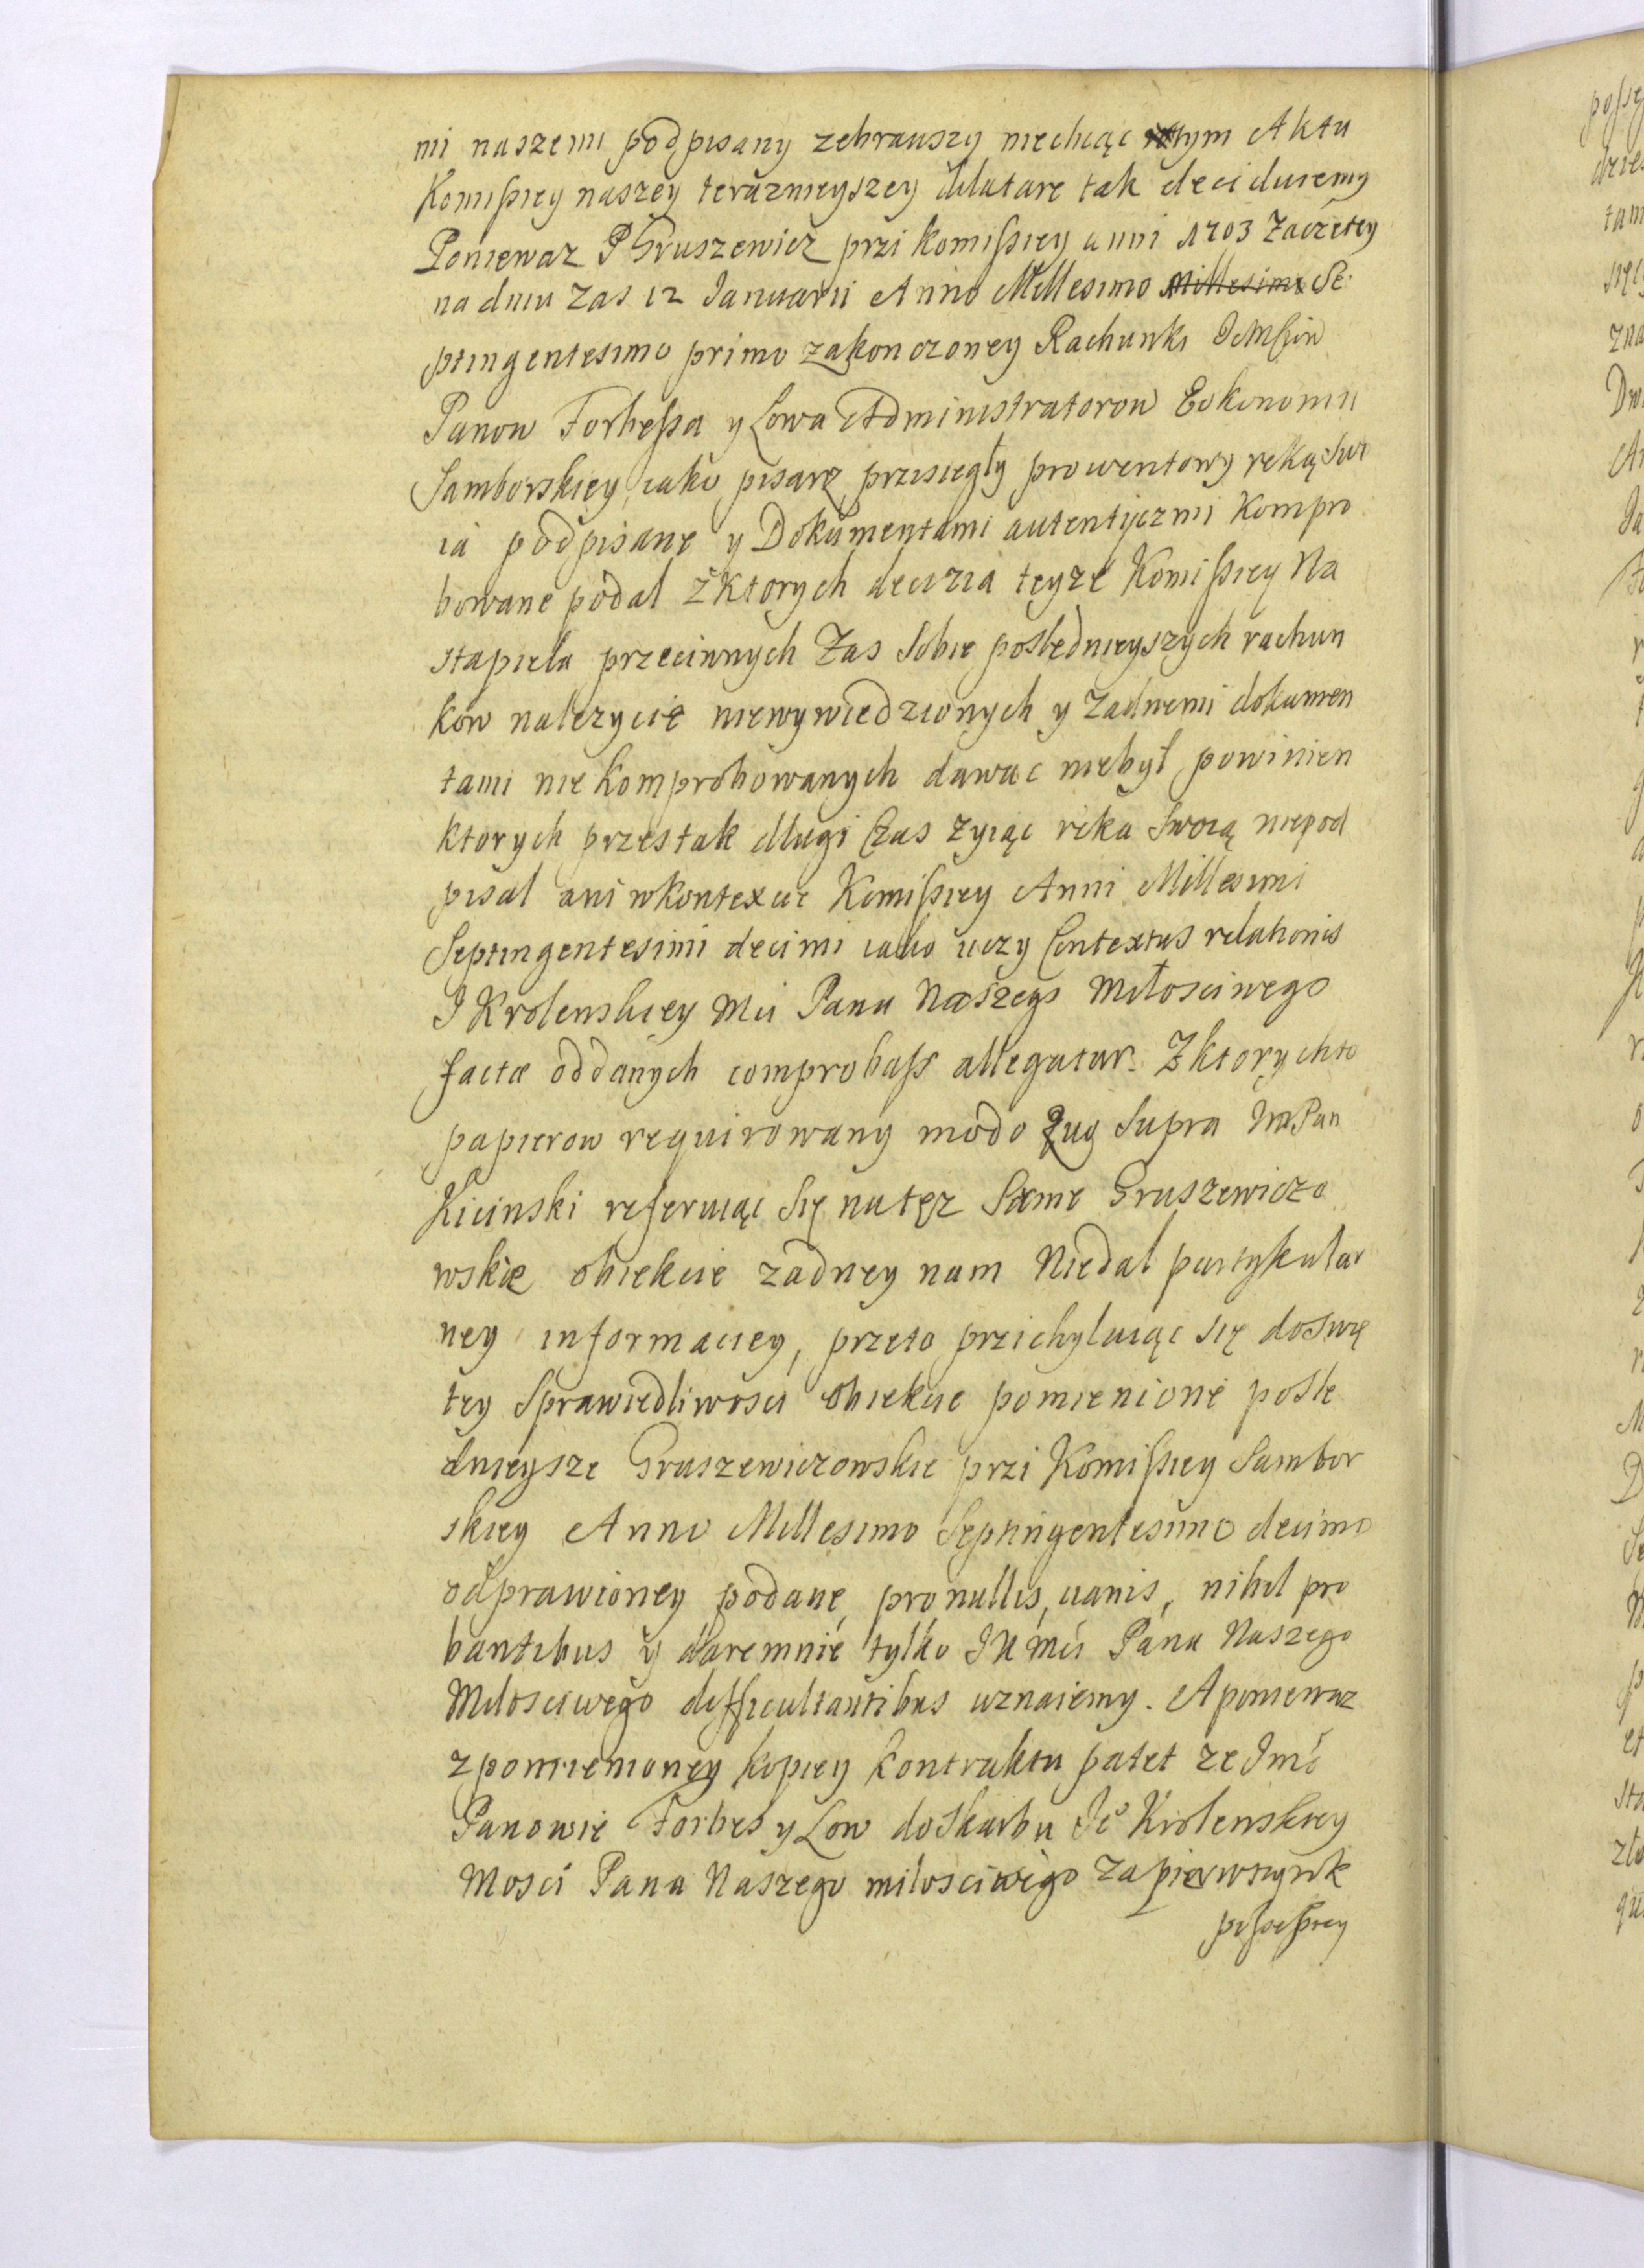 mi naszemi podpisany zebrawszy niechcąc tym Aktu
Komißiey naszey teraznieyszey dilatare tak deciduiemy
Poniewaz P Gruszewicz przi Komißiey anni 1703 Zaczętey
na dniu zas 12 Januarii Anno Millesimo Millesimo Se
ptingentesimo primo zakonczoney Rachunki
Panow Forbeßa y Lowa Administratorow Eokonomii
Samborskiey iako pisarz przisiegły prowentowy ręką Swo
ią podpisane y Dokumentami autentycznimi Kompro
bowane podal z ktorych decizia teyze Komißiey Na
stapieła przeciwnych Zas Sobie poslednieyszych rachun
kow nalezycie niewywiedzionych y zadnemi dokumen
tami nie komprobowanych dawac niebył powinien
ktorych przes tak długi Czas zyiąc ręka Swoią niepod
pisal ani wkontexcie Komißiey Anni Millesimi
Septingentesimi decimi iako uczy Contextus relationis
J Krolewskiey Mci Panu Naszego Miłosciwego
factæ oddanych comprobaßs allegatur. Z ktorychto
papierow requirowany modo quo Supra ImPan
Kicinski referuiąc Się na tęz Same Gruszewiczo
wskie obiekcie zadney nam Niedał partykular
ney informaciey, przeto przichylaiąc się doswię
tey Sprawiedliwosci obiekcie pomienione posle
dnieysze Gruszewiczowskie przi Komißiey Sambor
skiey Anno Millesimo Septingentesimo decimo
odprawioney podane, pro nullis, uanis, nihil pro
bantibus y daremnie tylko JKMci Pana Naszego
Miłosciwego difficultantibus uznaiemy. A poniewaz
z pomienioney kopiey kontraktu patet ze Jmć
Panowie Forbes y Low do Skarbu Je⁰ Krolewskiey
Mosci Pana Naszego miłosciwego za pierwszynk
poßeßiey